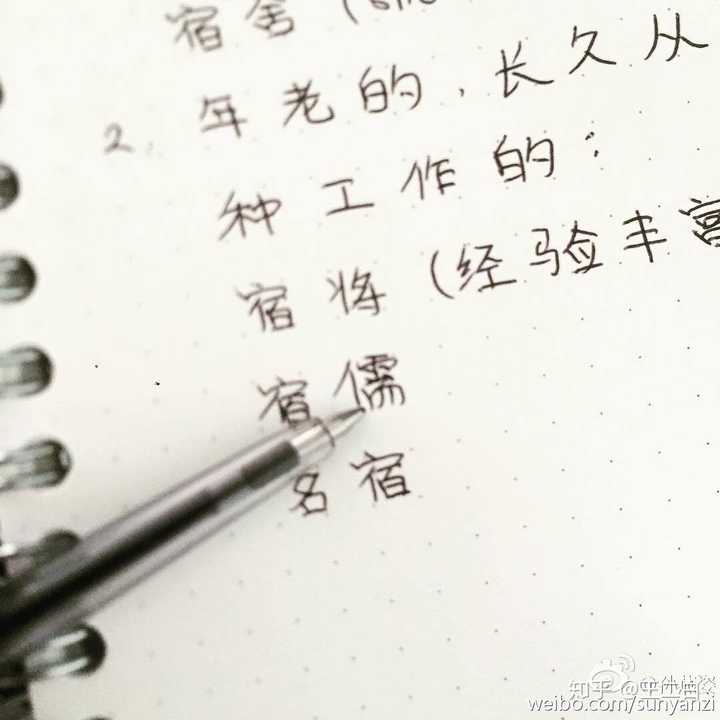 宿舍(
2. 年老的,长久从
种工作的:
宿将(经验丰富
宿儒
名宿
知乎
weibo.com/sunyanzi